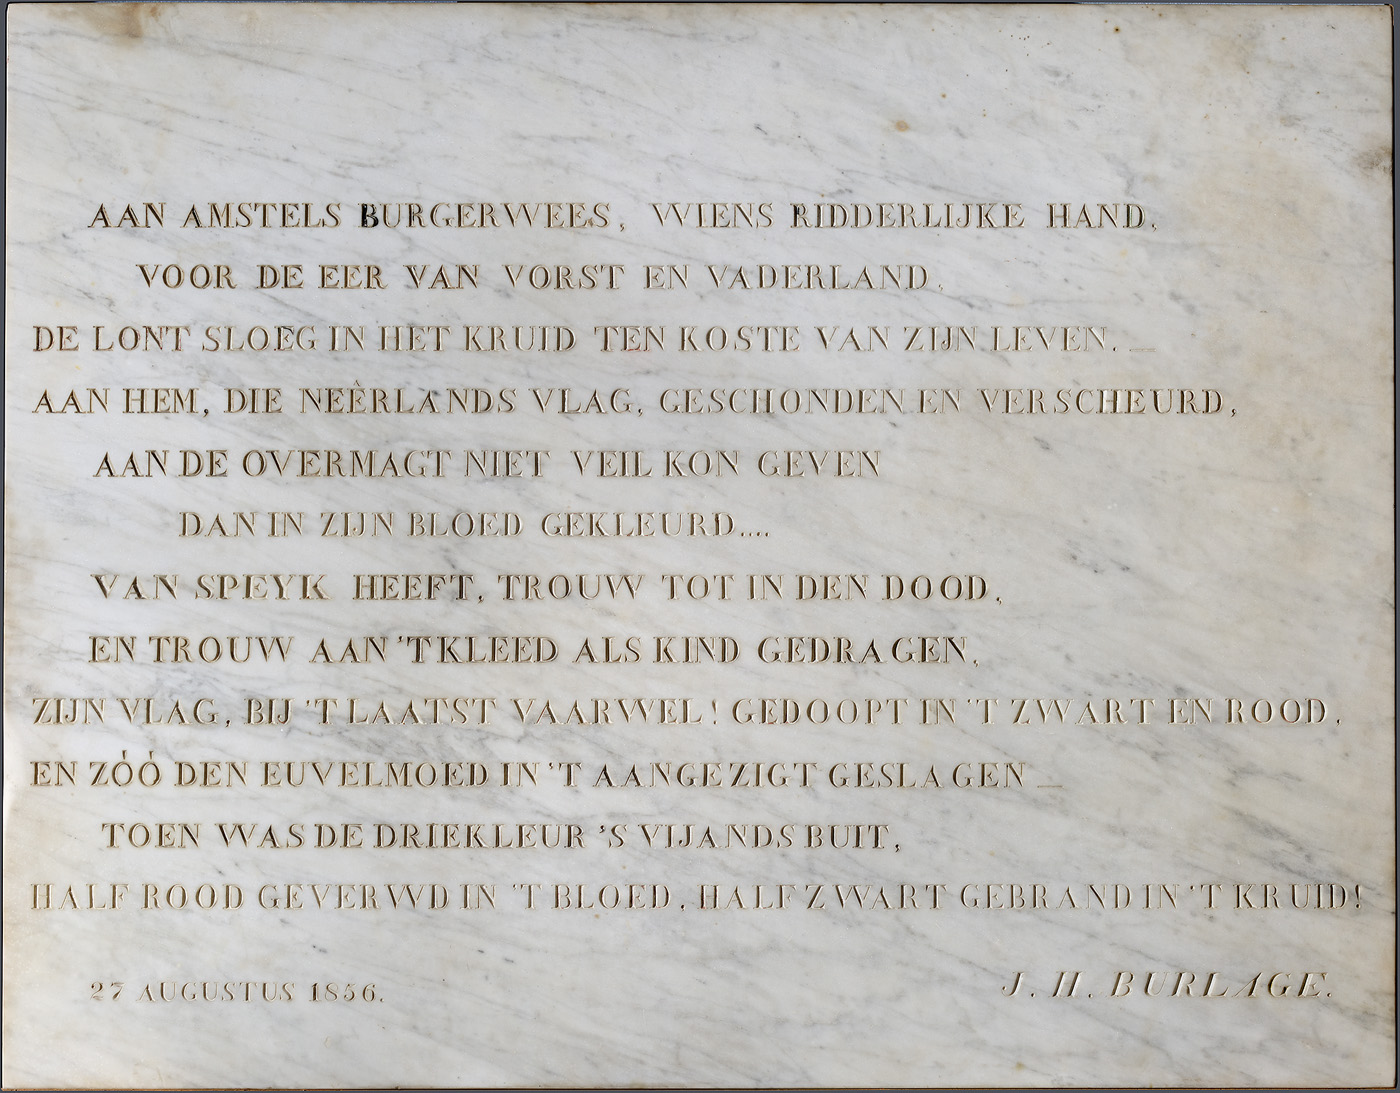 AAN AMSTELS BURGERWEES, WIENS RIDDERLIJKE HAND,
VOOR DE EER VAN VORST EN VADERLAND,
DE LONT SLOEG IN HET KRUID TEN KOSTE VAN ZIJN LEVEN. —
AAN HEM, DIE NEÊRLANDS VLAG, GESCHONDEN EN VERSCHEURD,
AAN DE OVERMAGT NIET VEIL KON GEVEN
DAN IN ZIJN BLOED GEKLEURD....
VAN SPEYK HEEFT, TROUW TOT IN DEN DOOD,
EN TROUW AAN 'T KLEED ALS KIND GEDRAGEN,
ZIJN VLAG, BIJ 'T LAATST VAARWEL! GEDOOPT IN 'T ZWART EN ROOD,
EN ZÓÓ DEN EUVELMOED IN 'T AANGEZIGT GESLAGEN —
TOEN WAS DE DRIEKLEUR 'S VIJANDS BUIT,
HALF ROOD GEVERWD IN 'T BLOED, HALF ZWART GEBRAND IN 'T KRUID!
27 AUGUSTUS 1856.
J. H. BURLAGE.